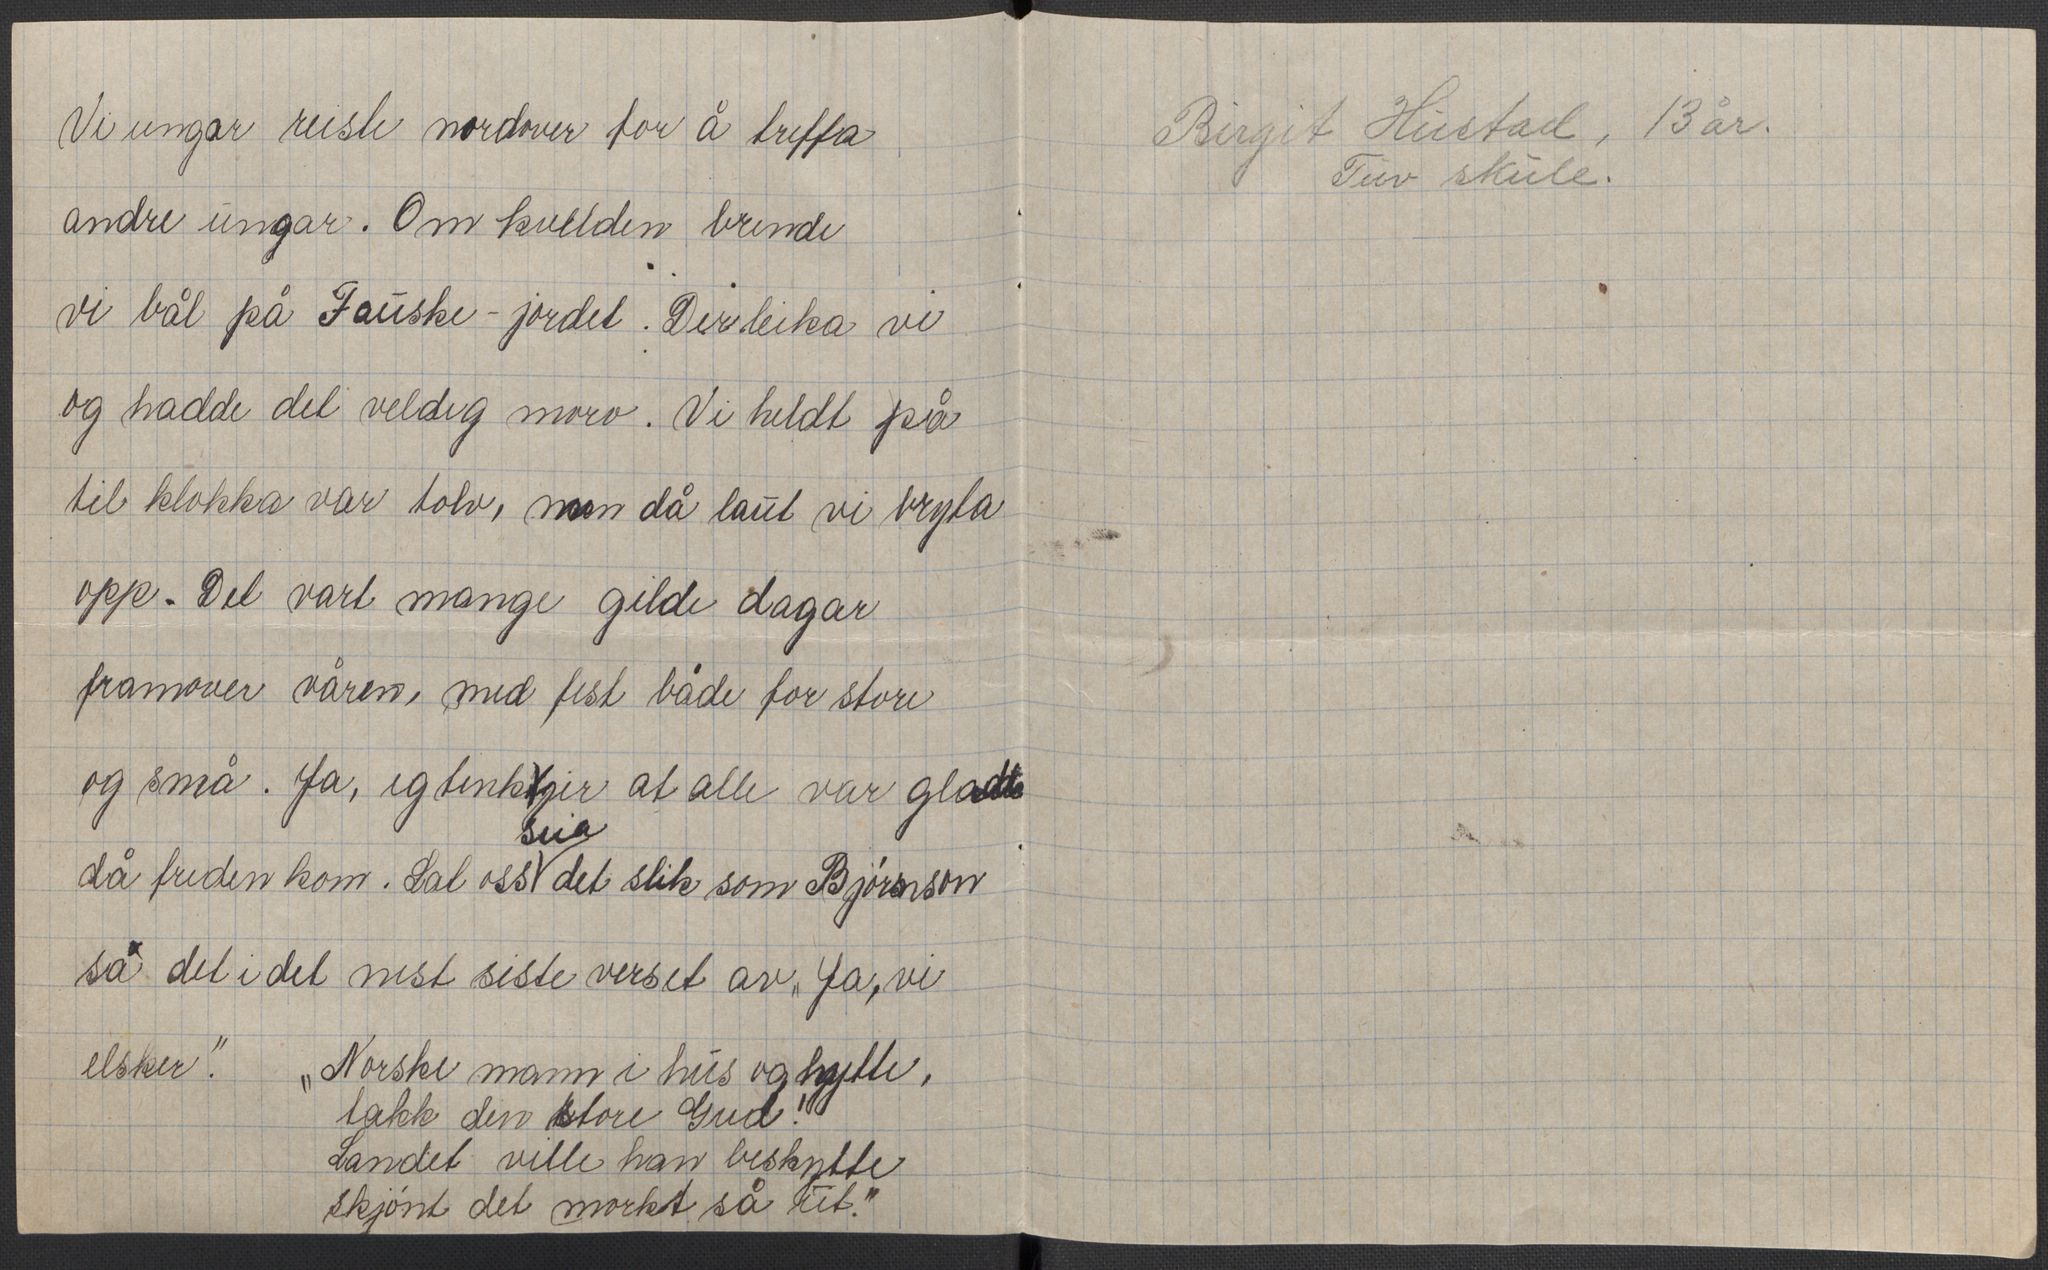 Vi ungar reiste nordover for å treffa
andre ungar. Om kvelden brende
vi bål på Fauske-jordet. Der leika vi
og hadde det veldig moro. Vi heldt på
til klokka var tolv, men då laut vi bryta
opp. Det vart mange gilde dagar
framover våren, med fest både for store
og små. Ja, eg tenkjer at alle var glade
då freden kom. Lat oss seia det slik som Bjørnson
sa det i det nest siste verset av „Ja, vi
elsker".
„Norske mann i hus og hytte,
takk din store Gud!
Landet ville han beskytte
skjønt det morkt så ut."
Birgit Hustad, 13 år.
Tuv skule.